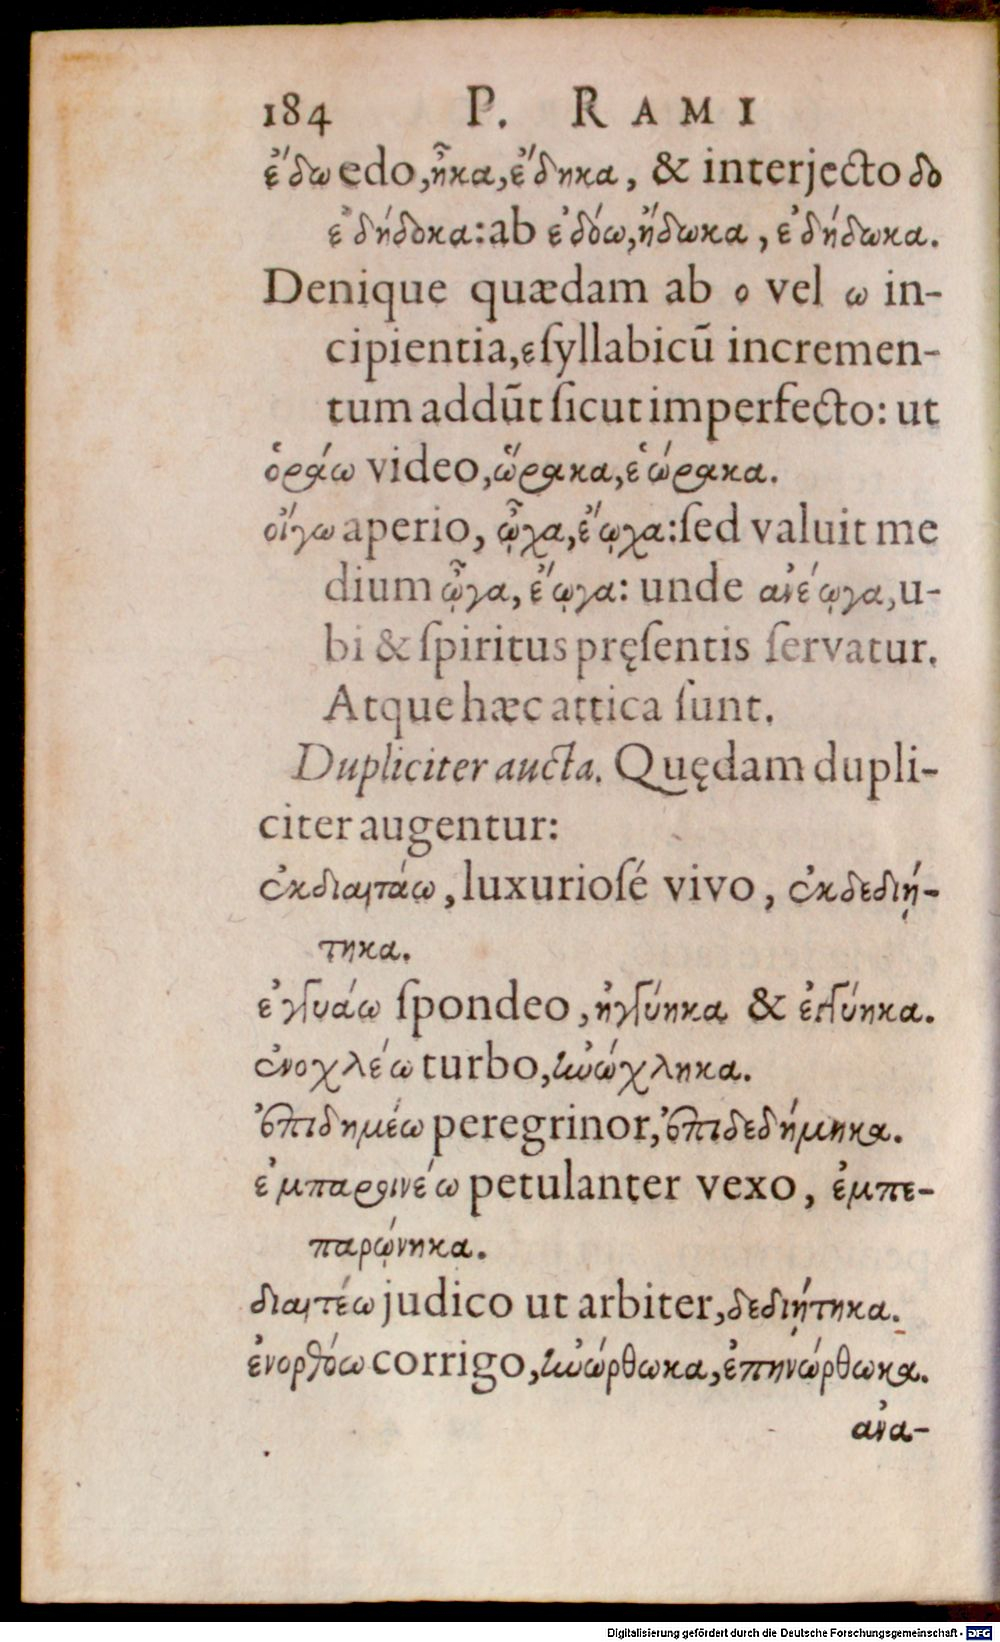 184 P. RAMI
ἔδω edo, ἦκα, ἔδηκα, & interjecto δο
ἐδήδοκα: ab ἐδόω, ἥδωκα, ἐδήδωκα.
Denique quædam ab ο vel ω in-
cipientia, ε ſyllabicū incremen-
tum addūt ſicut imperfecto: ut
ὁράω video, ὥρακα, ἑώρακα.
οἴγω aperio, ᾦχα, ἔῳχα: ſed valuit me
dium ᾦγα, ἔῳγα: unde ἀνέῳγα, u-
bi & ſpiritus pręſentis ſervatur.
Atque hæc attica ſunt.
Dupliciter aucta. Quędam dupli-
citer augentur:
ἐκδιαιτάω, luxurioſé vivo, ἐκδεδιῄ-
τηκα.
ἐγγυάω ſpondeo, ἠγγύηκα & ἐγγύηκα.
ἐνοχλέω turbo, ἠνώχληκα.
ἐπιδημέω peregrinor, ἐπιδεδήμηκα.
ἐμπαροινέω petulanter vexo, ἐμπε-
παρῴνηκα.
διαιτέω judico ut arbiter, δεδιῄτηκα.
ἐνορθόω corrigo, ἠνώρθωκα, ἐπηνώρθωκα.
ἀνα-
Digitalisierung gefördert durch die Deutsche Forschungsgemeinschaft - DFG